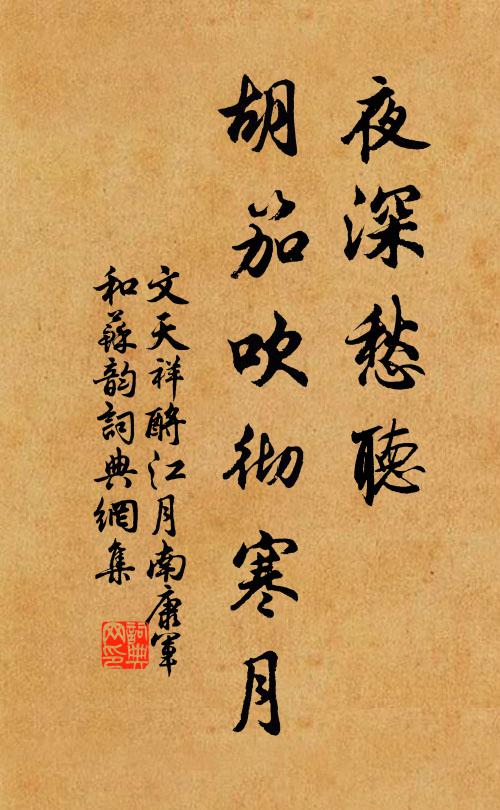 夜深愁聽
胡笳吹彻寒月
文天祥酹江月南康軍
和蘇韵詞典網集
詞典
网印